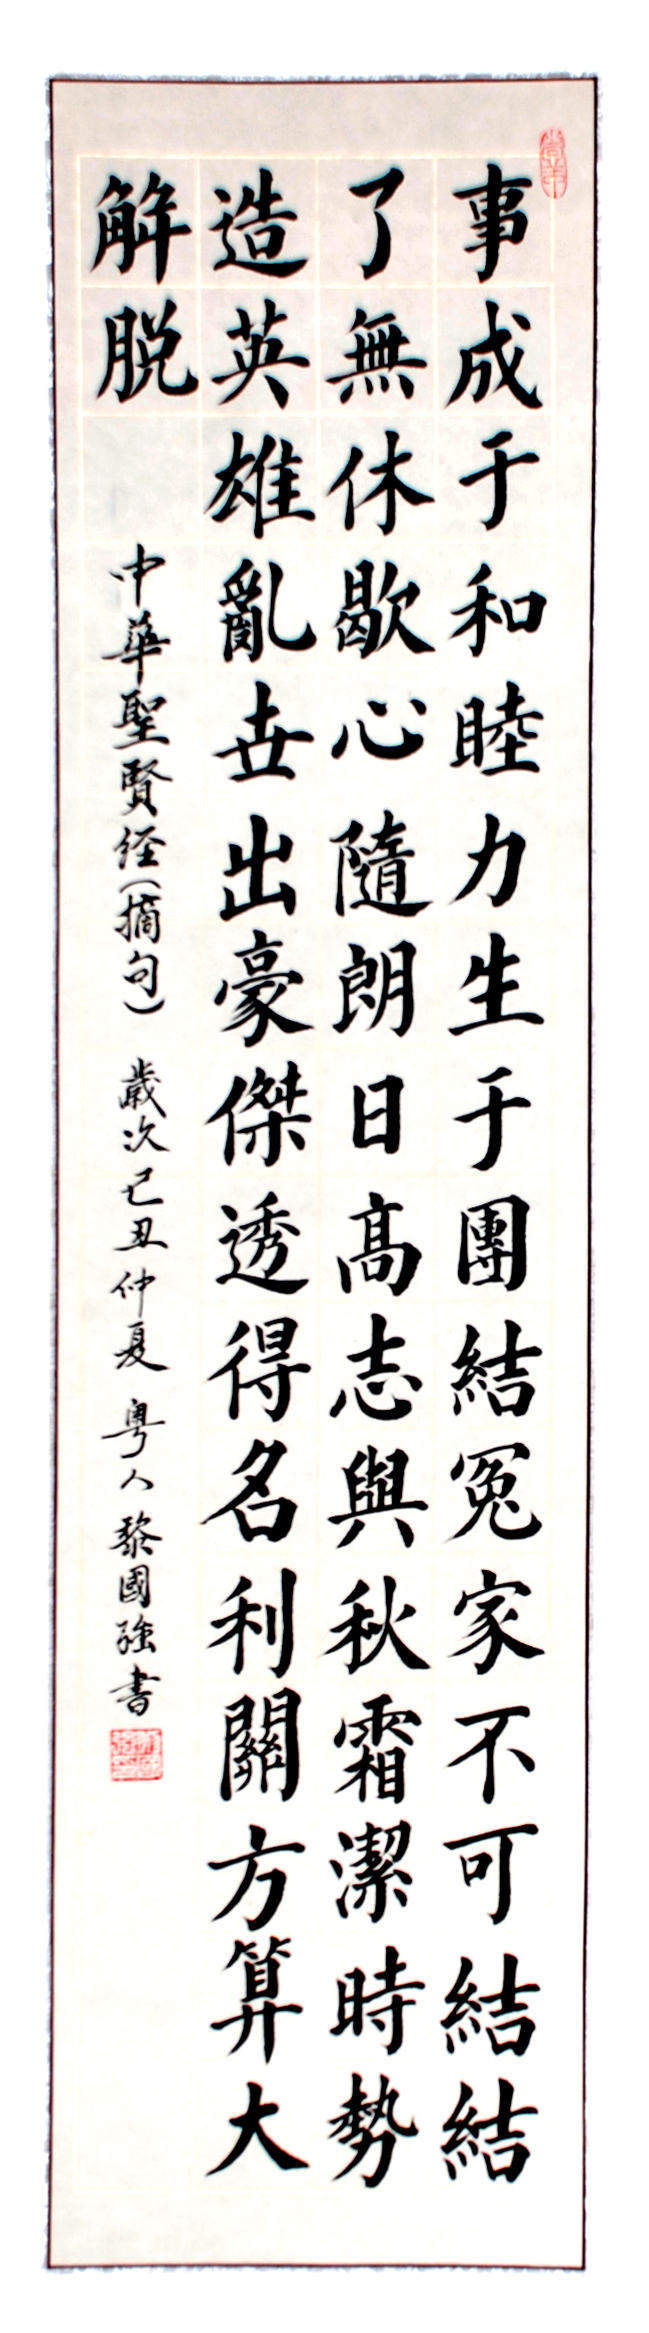 事成于和睦力生于團結冤家不可結結
了無休歇心隨朗日髙志與秋霜潔時勢
造英雄亂世出豪傑透得名利關方算大
解脱
中華聖賢经(摘句) 歲次己丑仲夏 粤人黎國強書